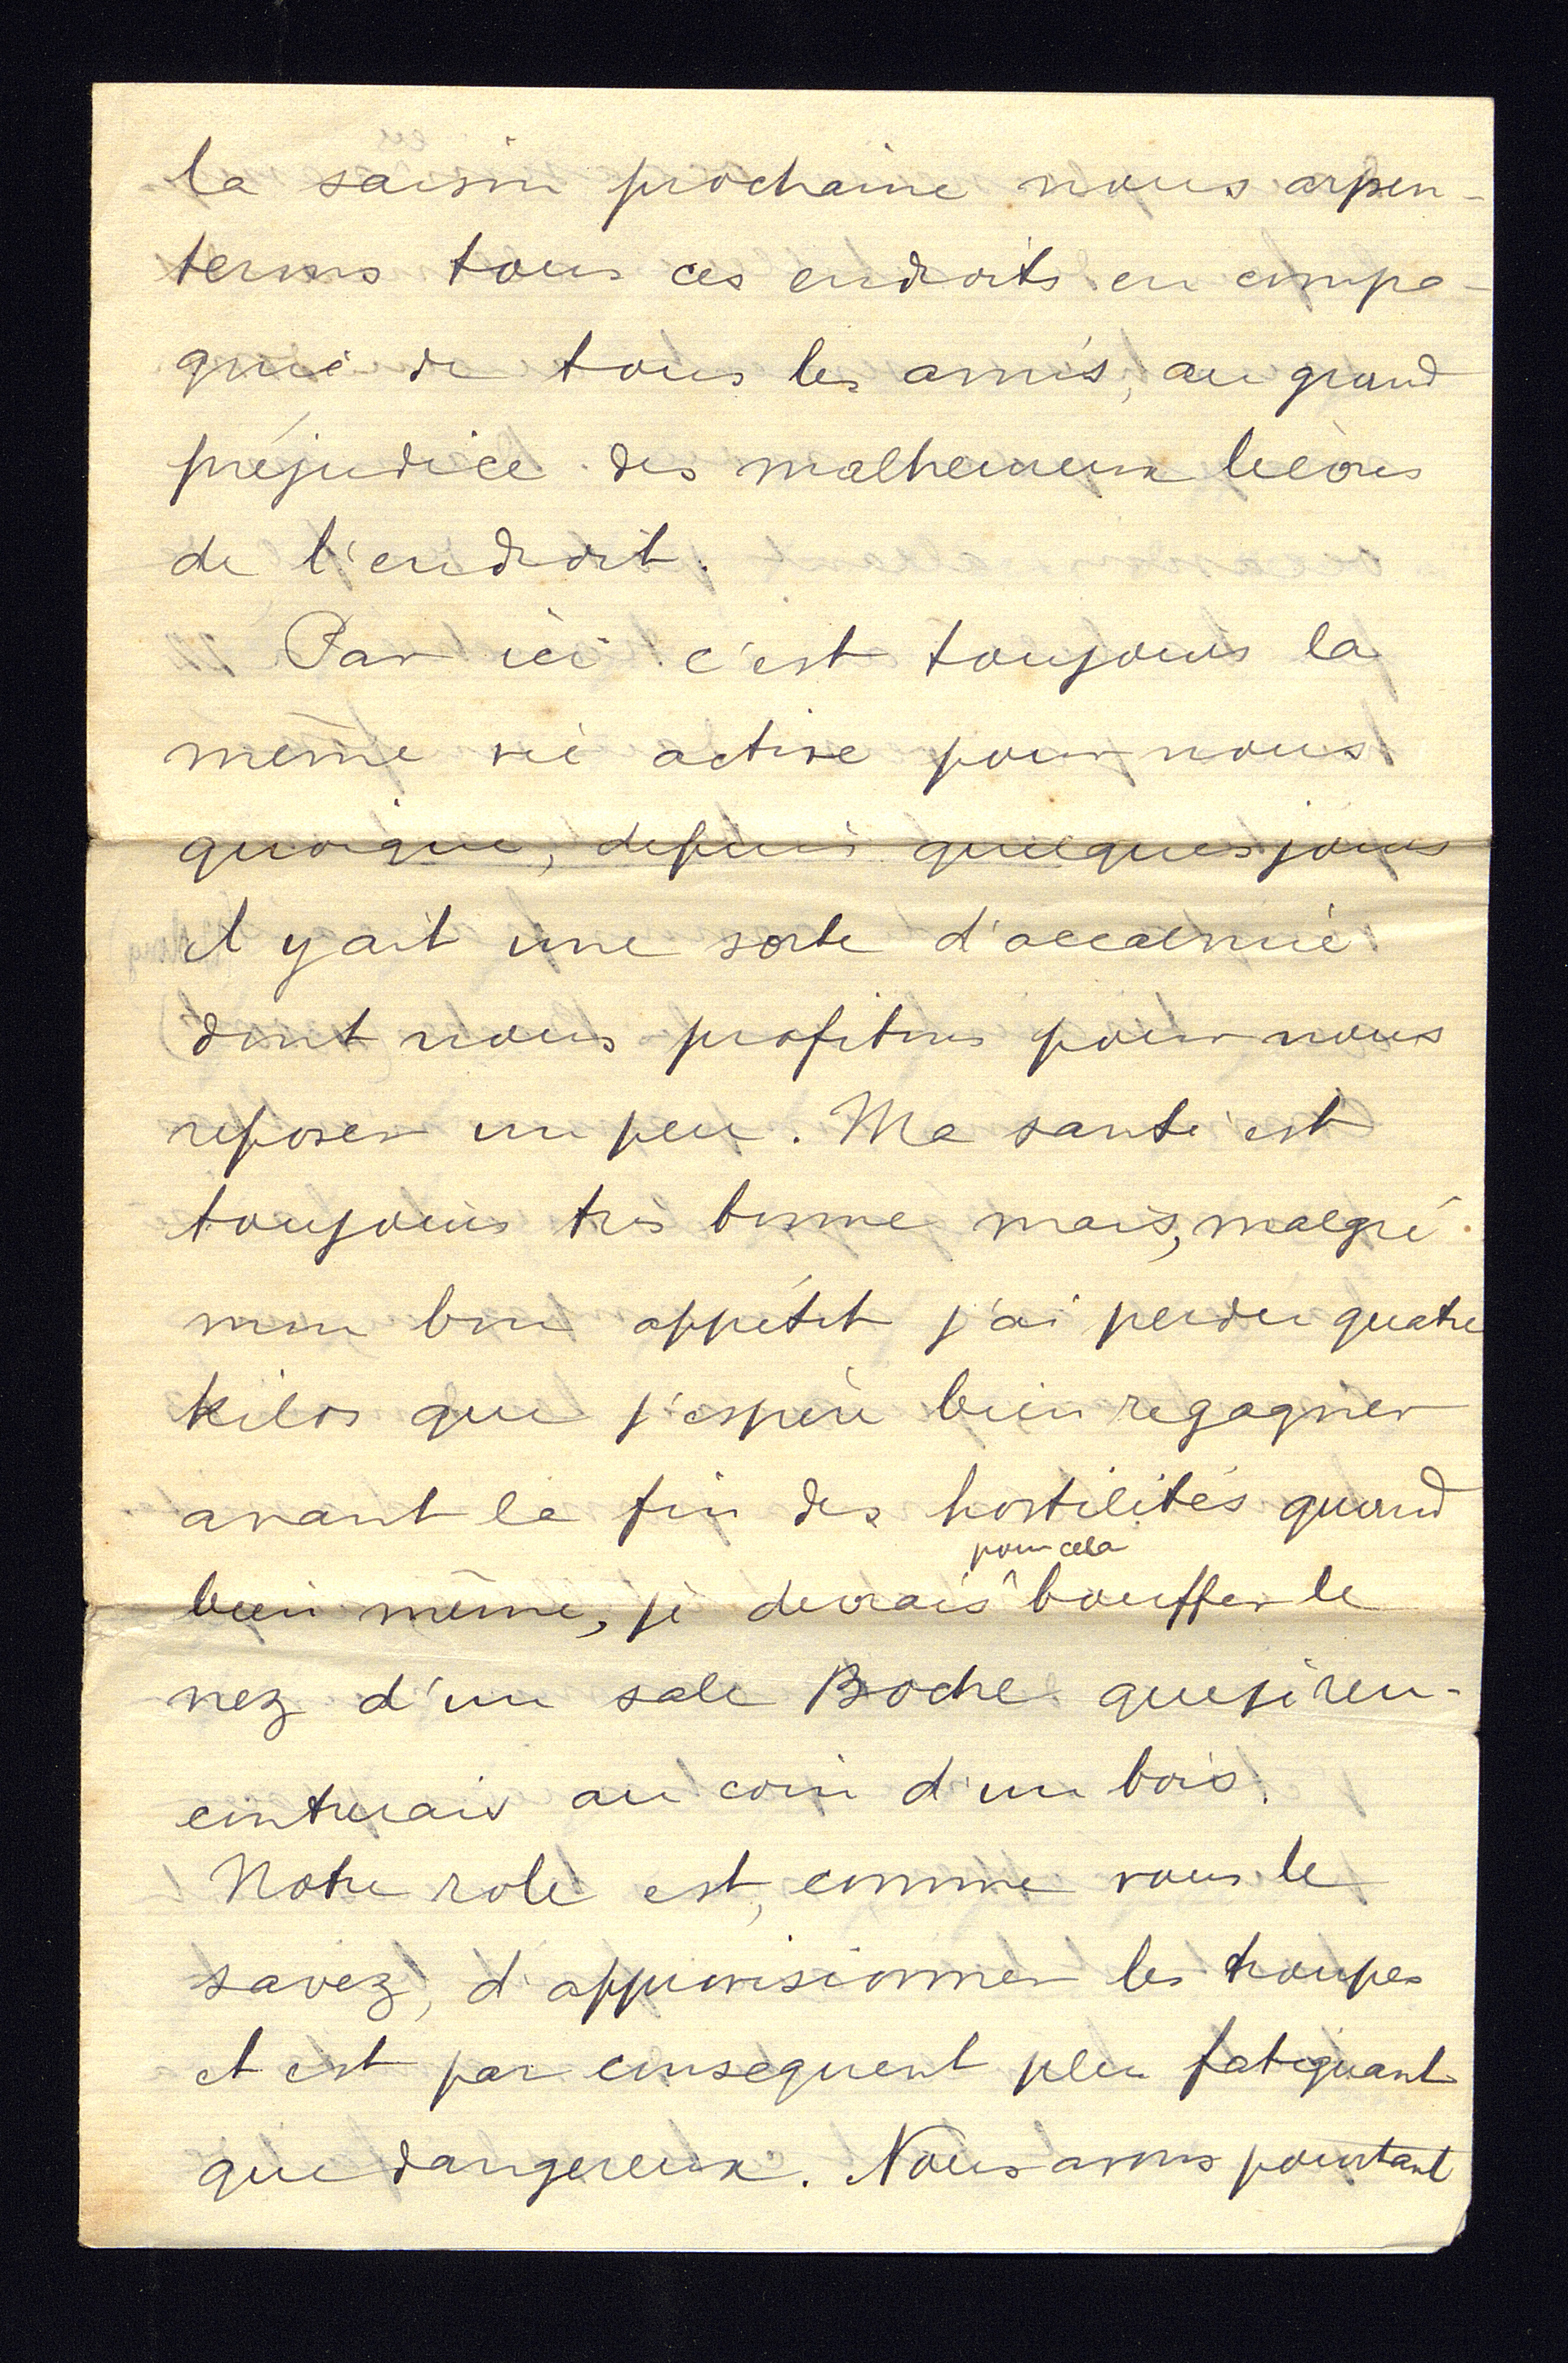 la saison prochaine nous arpen-
terons tous ces endroits en compa-
gnie de tous les amis, au grand
préjudice des malheureux lièvres
de l'endroit.
Par ici c'est toujours la
même vie active pour nous
quoique, depuis quelques jours
il y ait une sorte d'accalmie
dont nous profitons pour nous
reposer un peu. Ma santé est
toujours très bonne mais, malgré
mon bon appétit j'ai perdu quatre
kilos que j'espère bien regagner
avant la fin des hostilités quand
pour cela
bien même, je devrais ^ bouffer le
nez d'un sale Boche que je ren-
contrerais au coin d'un bois.
Notre role est, comme vous le
savez, d'approvisionner les troupes
et est par consequent plus fatiguant
que dangereux. Nous avons pourtant